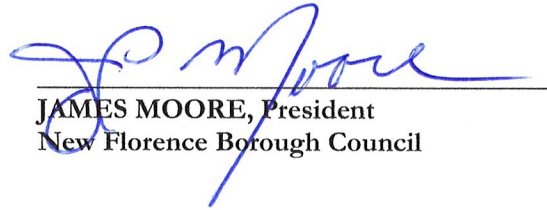 J P Moore
JAMES MOORE, President
New Florence Borough Council